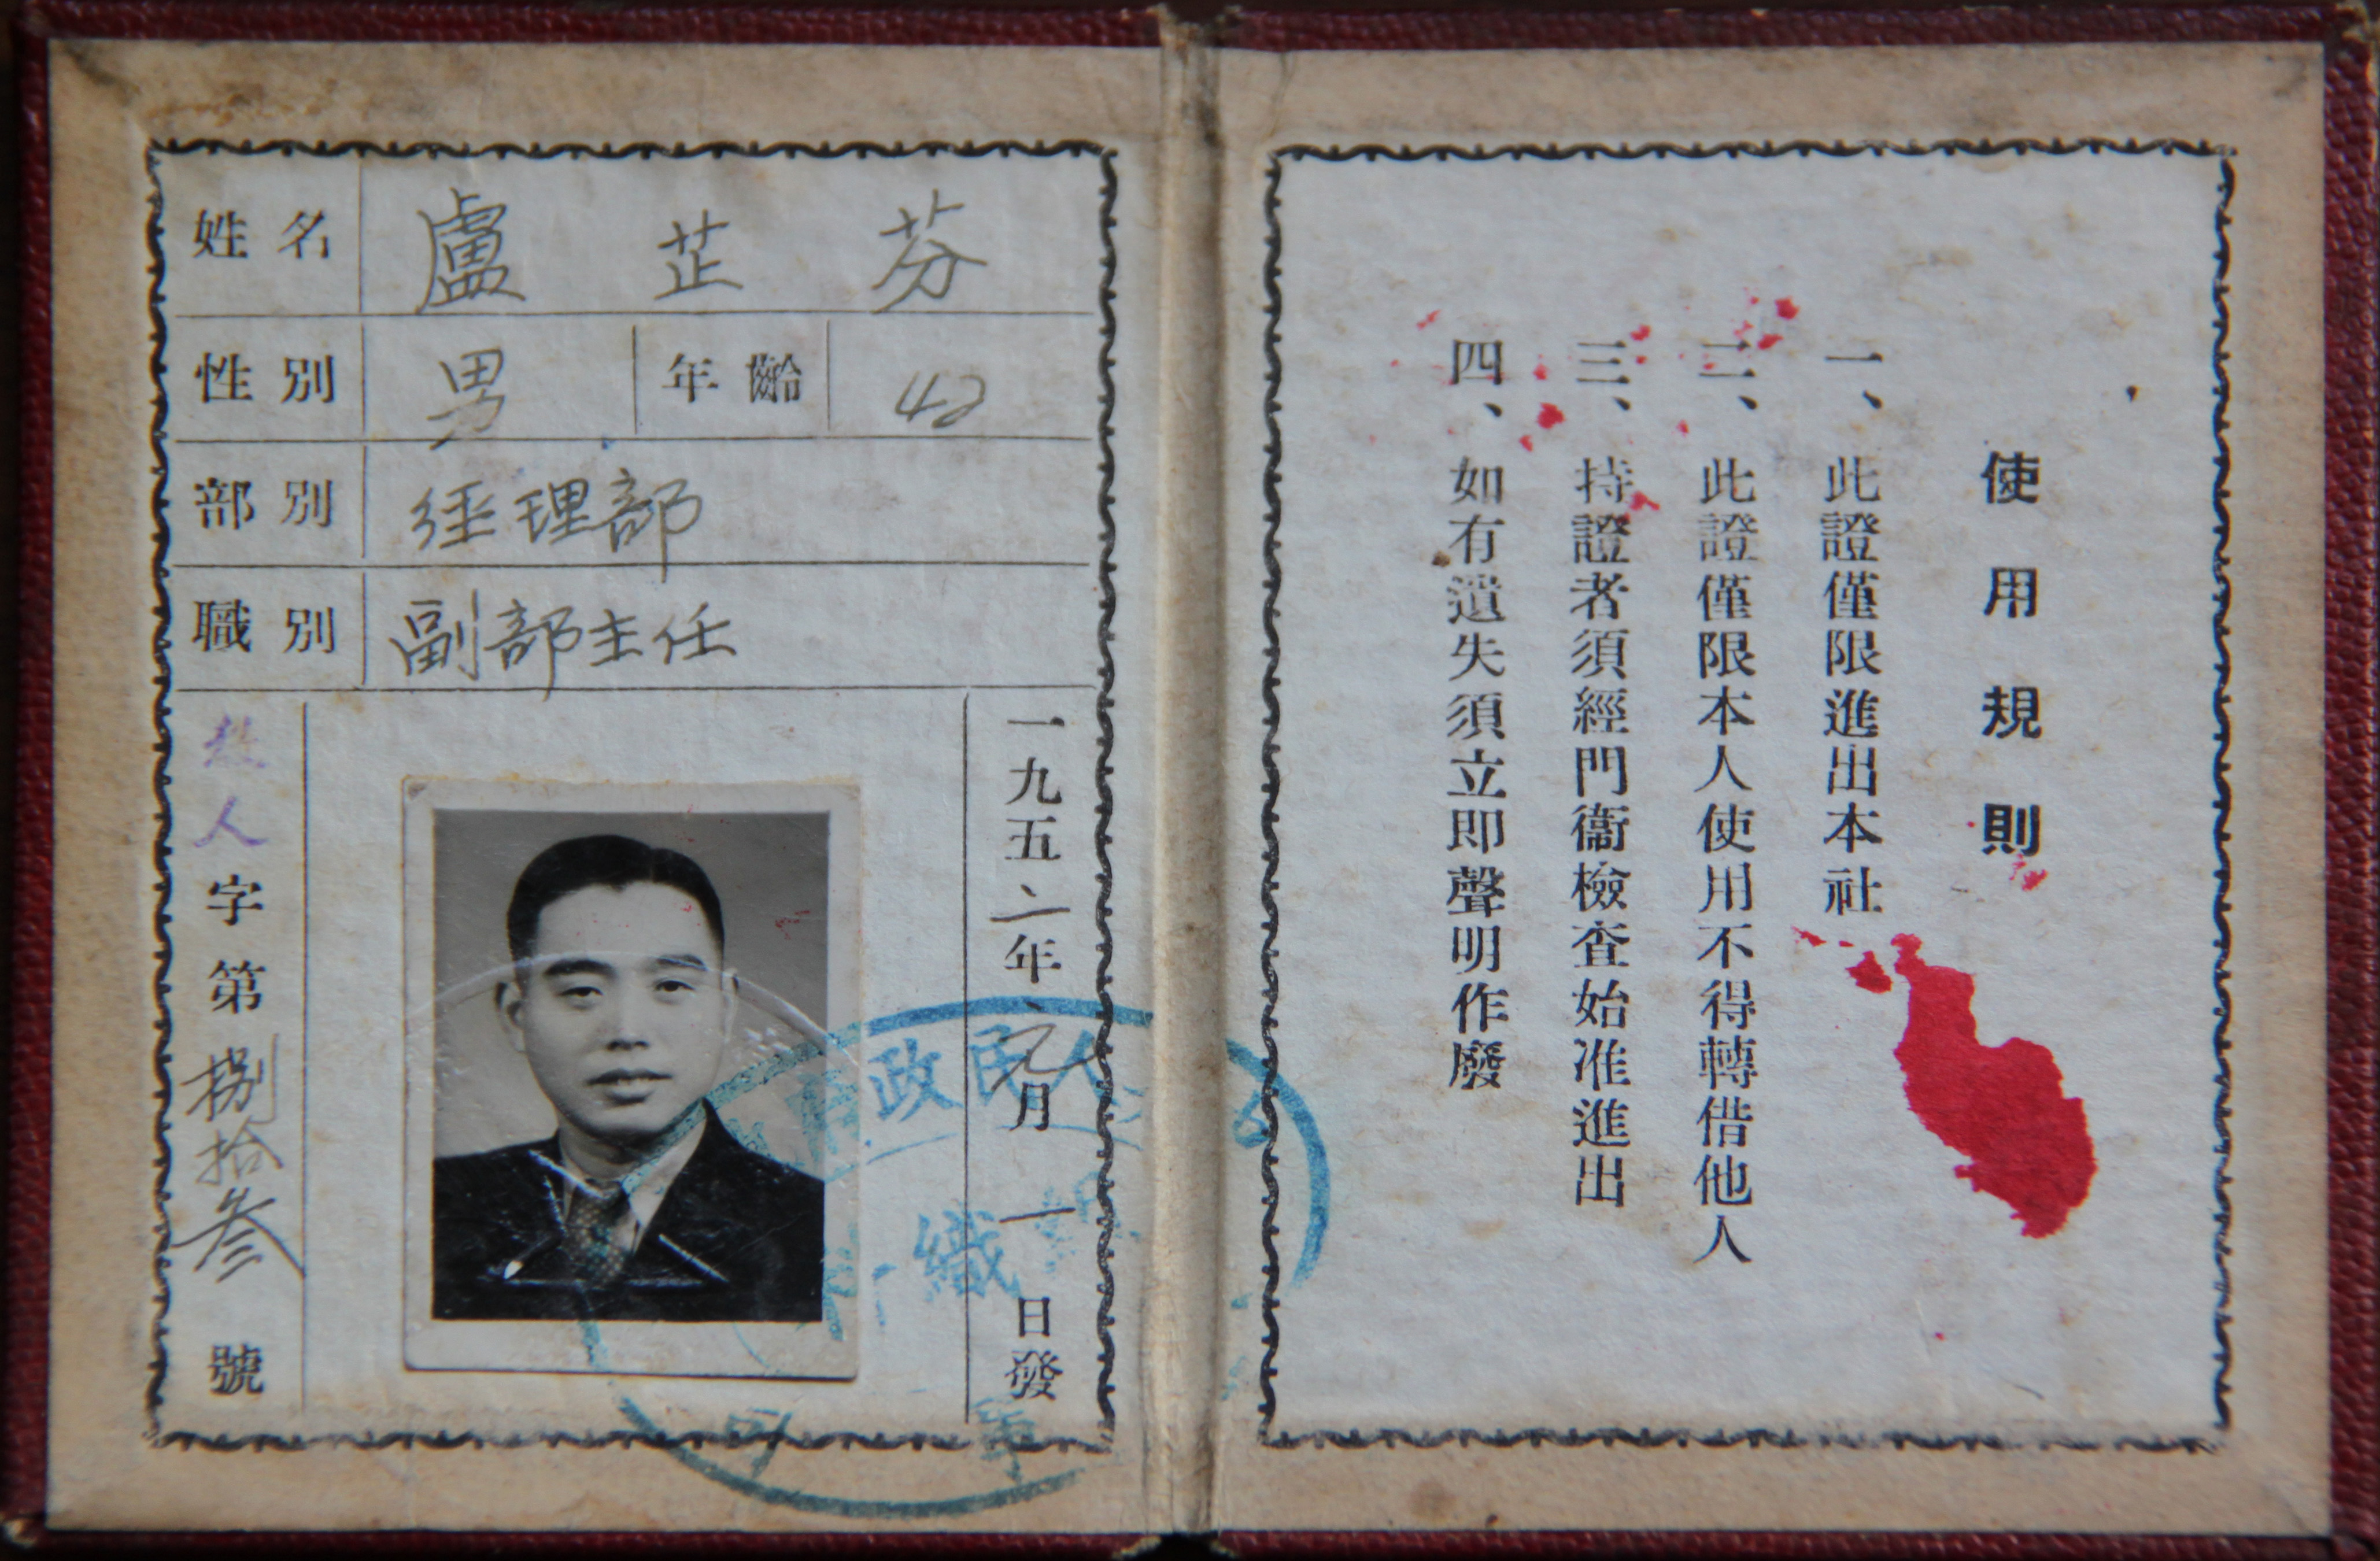 姓名 盧芷芬
性別 男 年齡 42
部別 經理部
職別 副部主任
人字第捌拾叁號
一九五二年元月一日發
人民政府
織
使用規則
一、此證僅限進出本社
二、此證僅限本人使用不得轉借他人
三、持證者須經門衞檢查始准進出
四、如有遺失須立即聲明作廢